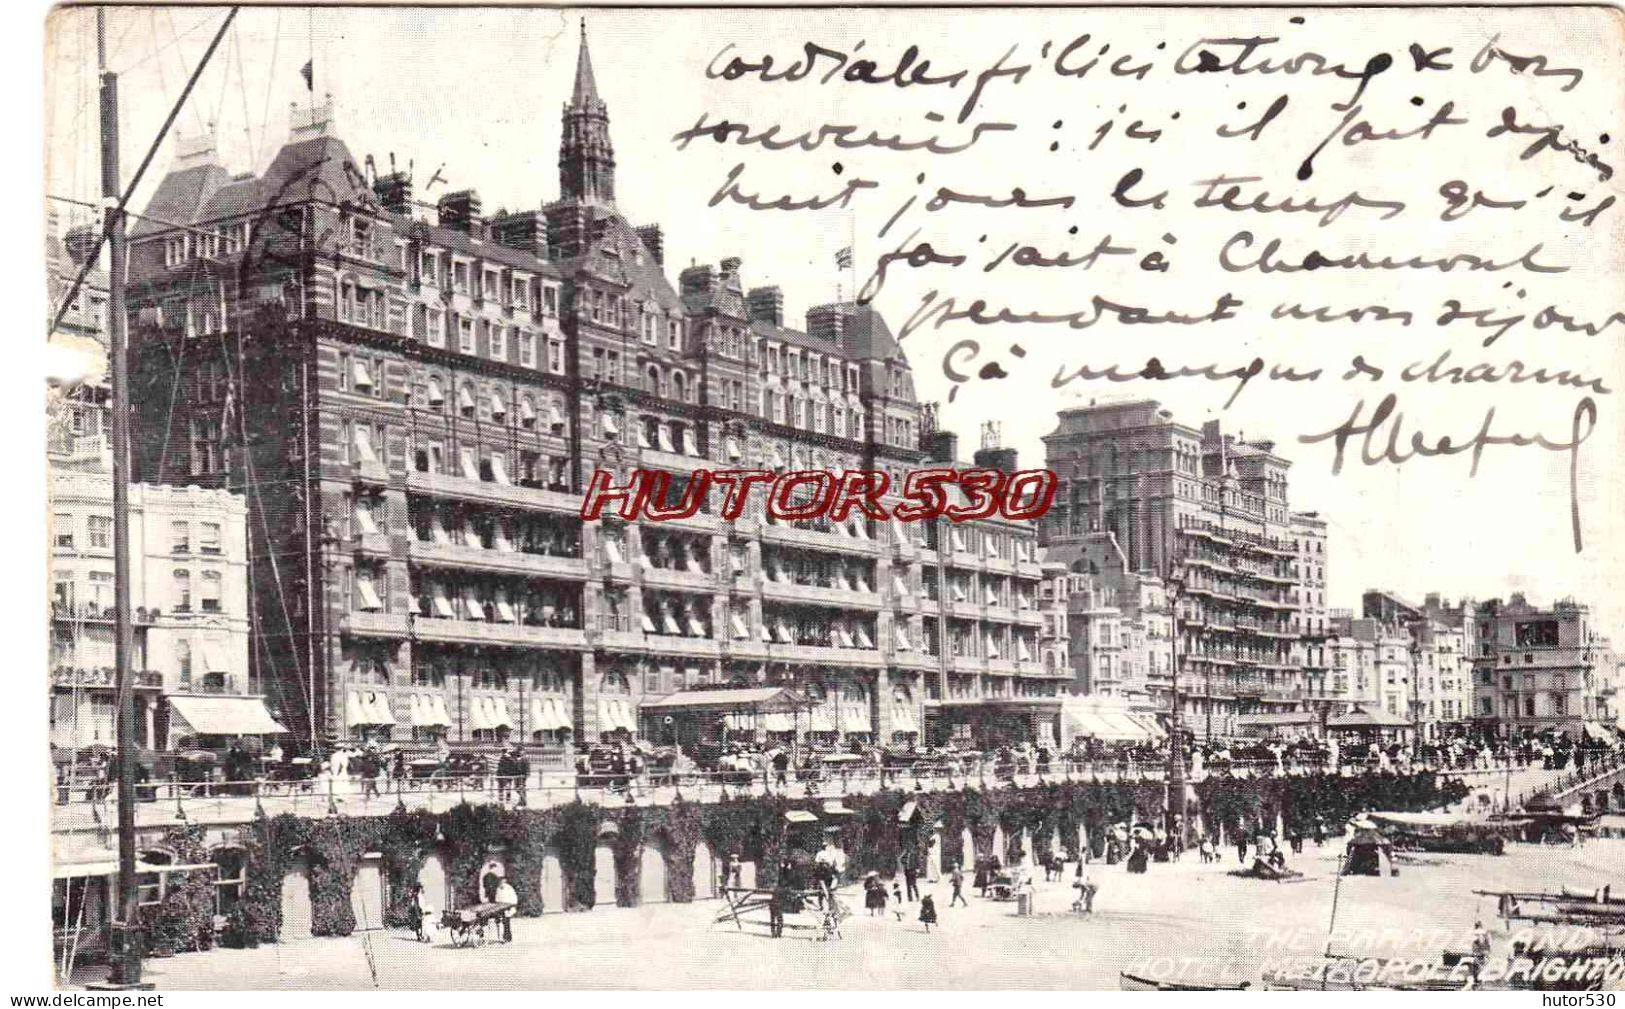 cordiales félicitations & bons
souvenirs : ici il fait depuis
huit jours le temps qu'il
faisait à Chaumont
pendant mon séjour
Ça manque de charme
HUTOR530
THE PARADE AND
HOTEL METROPOLE, BRIGHTO
delcampe.net
hutor530